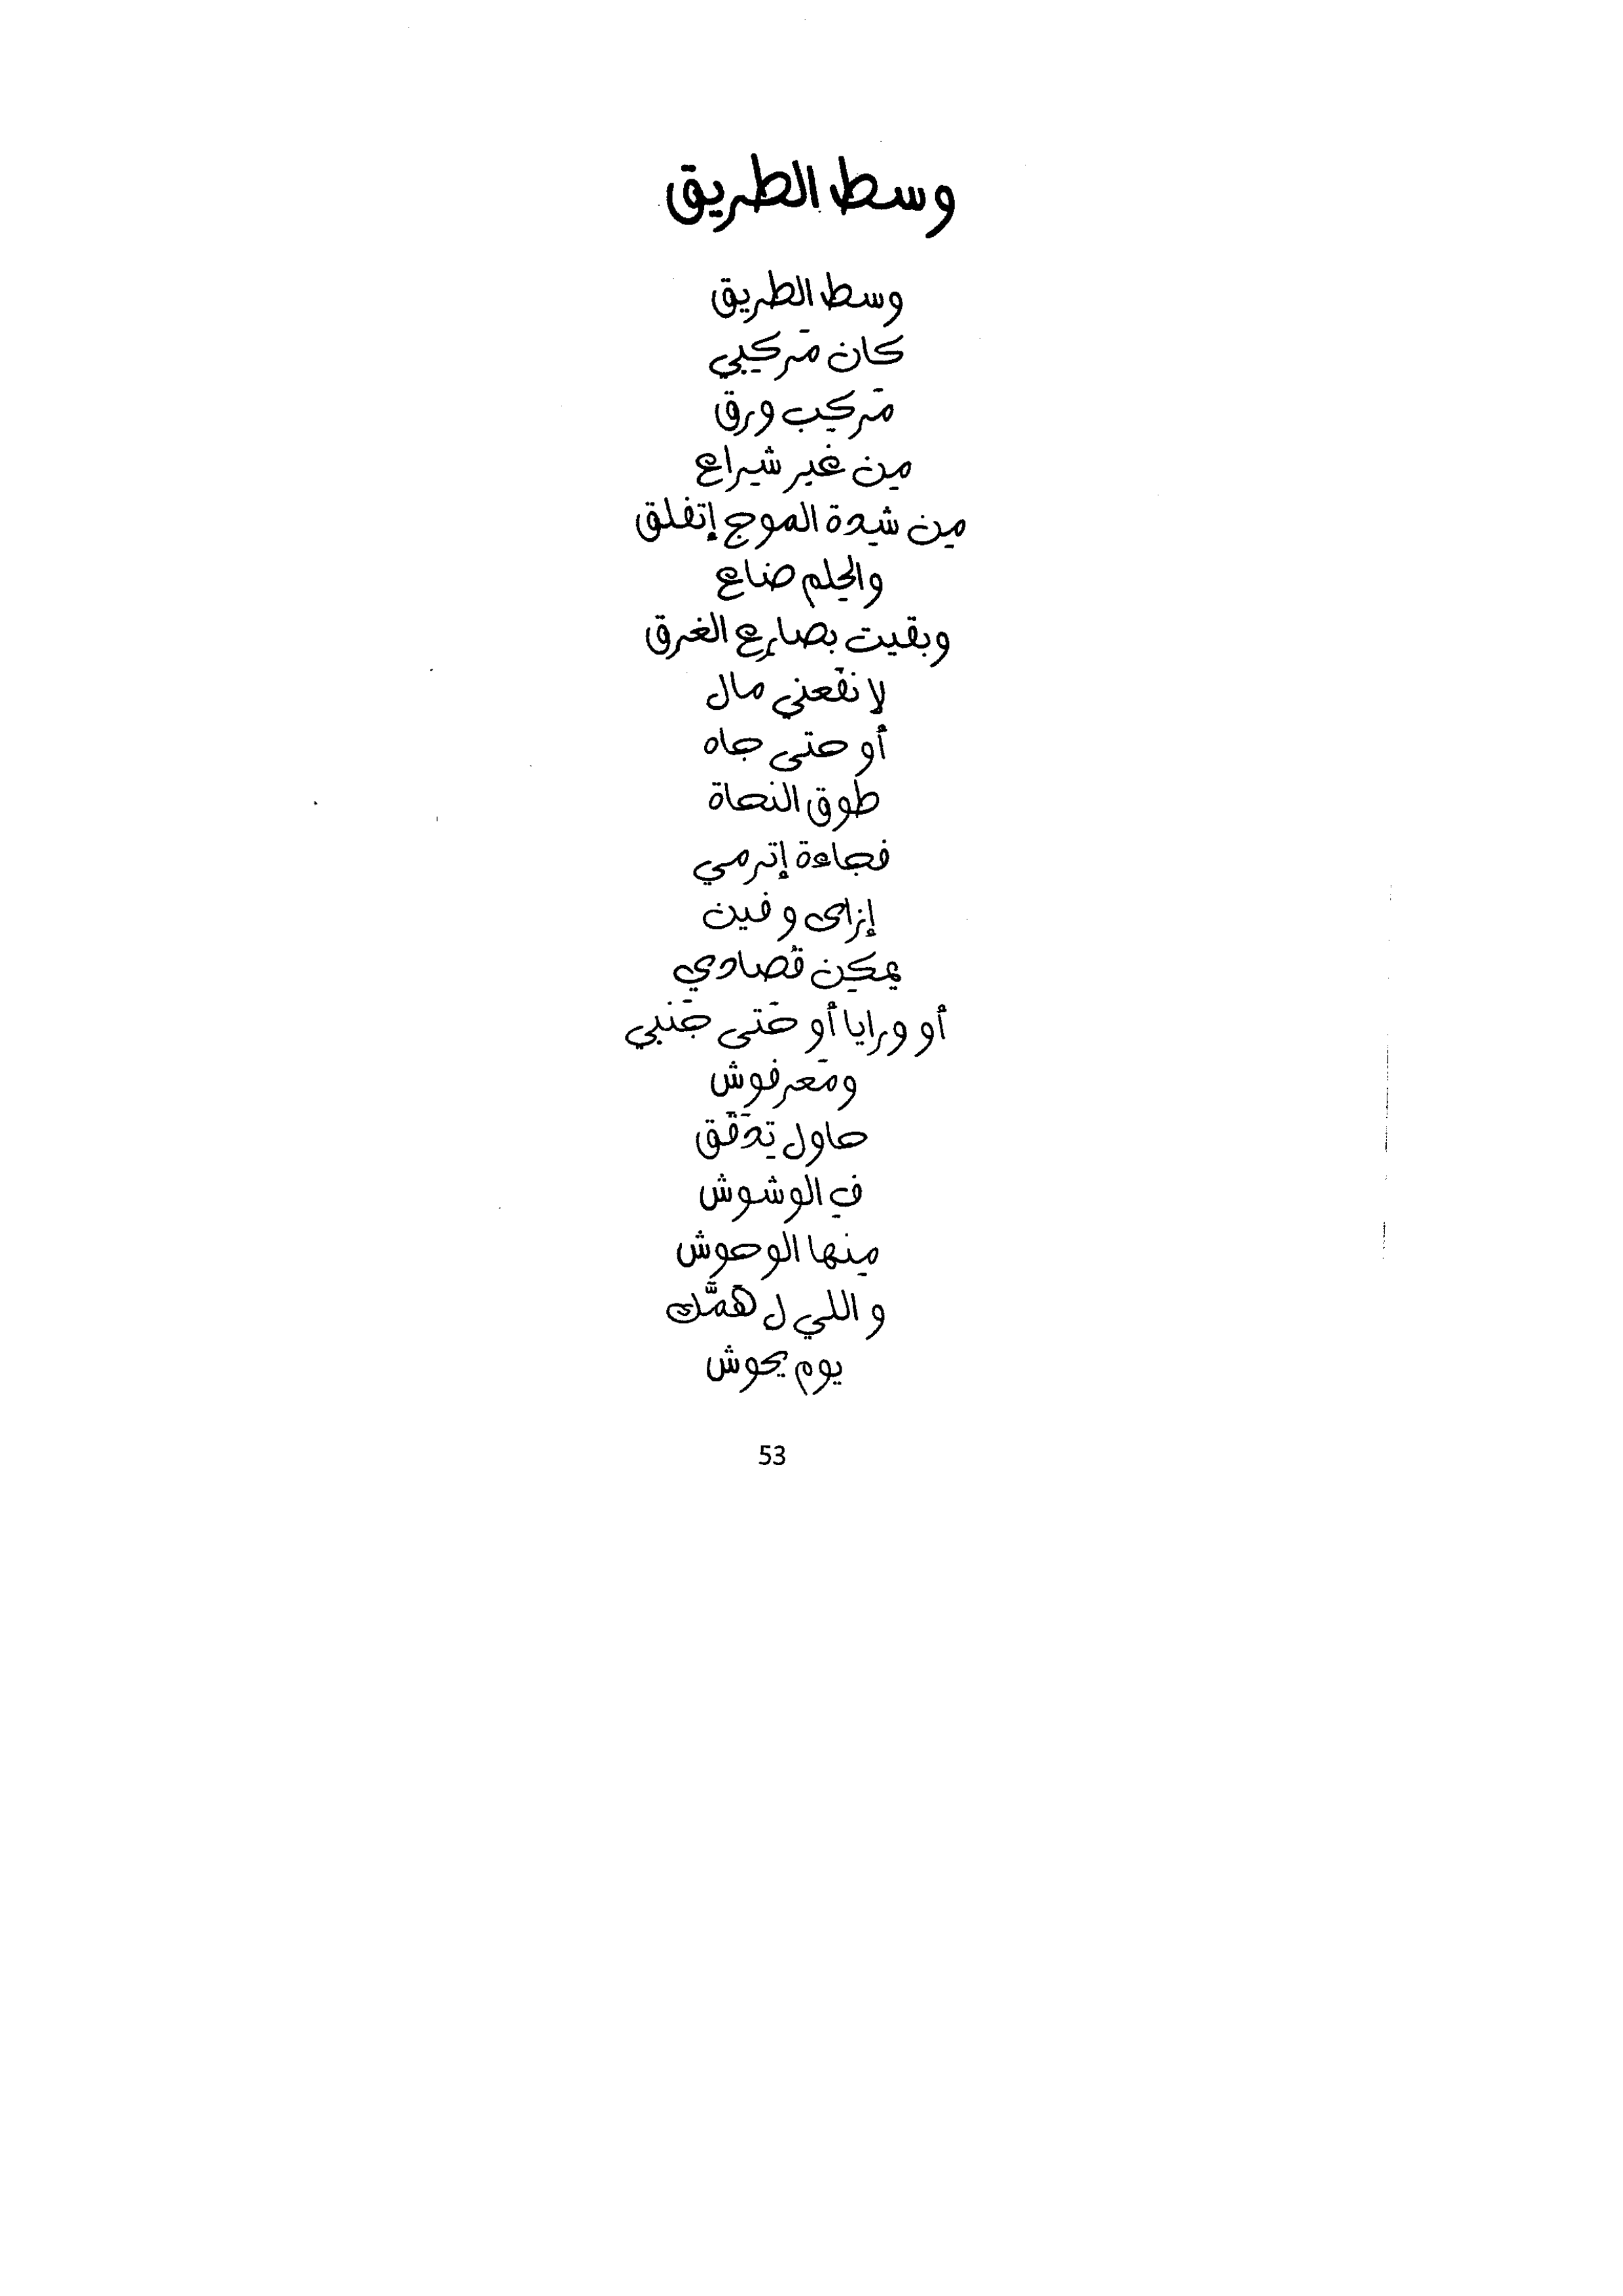 وسط الطريق
وسط الطريق
كان مَركِبي
مَركِب ورق
مِن غير شِراع
مِن شِدة الموج إتفلق
والحِلم ضاع
وبقيت بصارِع الغرق
لا نفَعني مال
أو حتى جاه
طوق النجاة
فجاءة إترمي
إزاى وفين
يمكِن قُصادي
أو ورايا أو حَتى جَنبي
ومَعرفوش
حاول تِدَقَّق
في الوشوش
مِنها الوحوش
و اللي ل هَمَّك
يوم يحوش
53